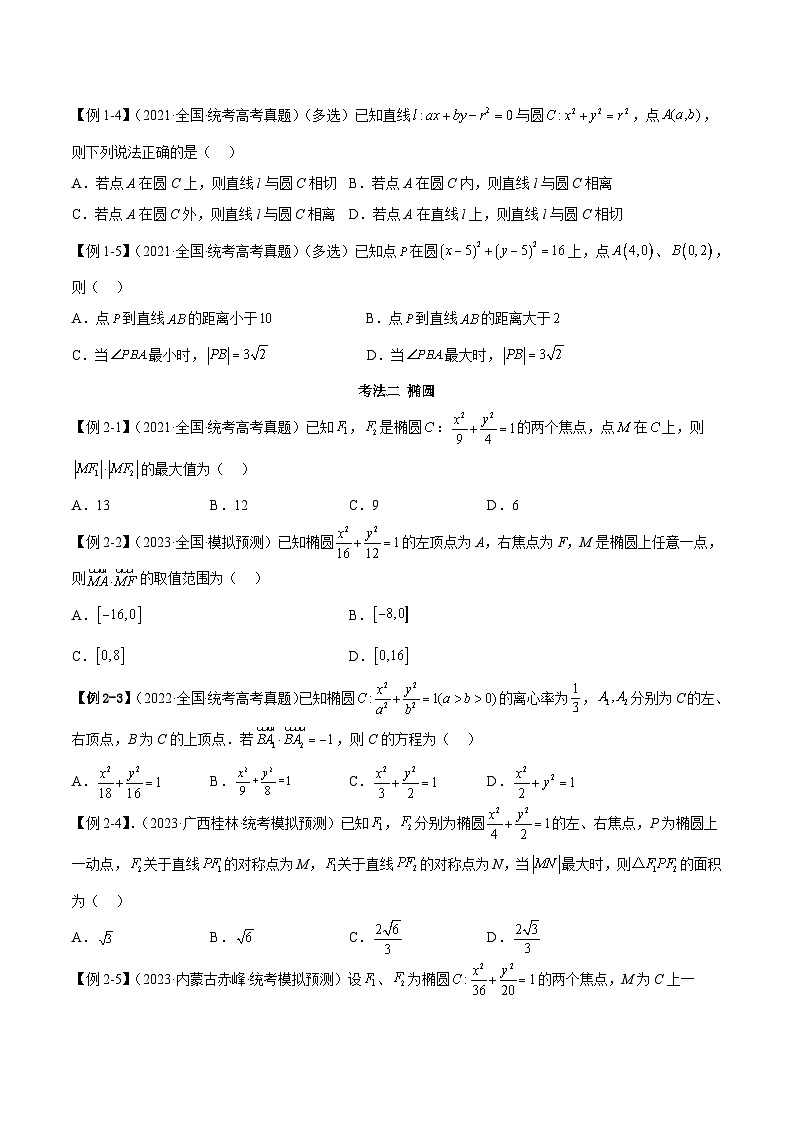 【例1-4】(2021·全国·统考高考真题)(多选)已知直线l:ax+by−r²=0与圆C:x²+y²=r²，点A(a,b)，
则下列说法正确的是（ ）
A．若点A在圆C上，则直线l与圆C相切 B．若点A在圆C内，则直线l与圆C相离
C．若点A在圆C外，则直线l与圆C相离 D．若点A在直线l上，则直线l与圆C相切
【例1-5】(2021·全国·统考高考真题)(多选)已知点P在圆(x−5)²+(y−5)²=16上，点A(4,0)、B(0,2)，
则（ ）
A．点P到直线AB的距离小于10 B．点P到直线AB的距离大于2
C．当∠PBA最小时，|PB|=3√2 D．当∠PBA最大时，|PB|=3√2
考法二 椭圆
【例2-1】(2021·全国·统考高考真题)已知F₁，F₂是椭圆C：x²/9+y²/4=1的两个焦点，点M在C上，则
|MF₁|·|MF₂|的最大值为（ ）
A．13 B．12 C．9 D．6
【例2-2】(2023·全国·模拟预测)已知椭圆x²/16+y²/12=1的左顶点为A，右焦点为F，M是椭圆上任意一点，
则MA·MF的取值范围为（ ）
A．[−16,0] B．[−8,0]
C．[0,8] D．[0,16]
【例2-3】(2022·全国·统考高考真题)已知椭圆C:x²/a²+y²/b²=1(a>b>0)的离心率为1/3，A₁,A₂分别为C的左、
右顶点，B为C的上顶点．若BA₁·BA₂=−1，则C的方程为（ ）
A．x²/18+y²/16=1 B．x²/9+y²/8=1 C．x²/3+y²/2=1 D．x²/2+y²=1
【例2-4】.(2023·广西桂林·统考模拟预测)已知F₁，F₂分别为椭圆x²/4+y²/2=1的左、右焦点，P为椭圆上
一动点，F₂关于直线PF₁的对称点为M，F₁关于直线PF₂的对称点为N，当|MN|最大时，则△F₁PF₂的面积
为（ ）
A．√3 B．√6 C．2√6/3 D．2√3/3
【例2-5】(2023·内蒙古赤峰·统考模拟预测)设F₁、F₂为椭圆C:x²/36+y²/20=1的两个焦点，M为C上一